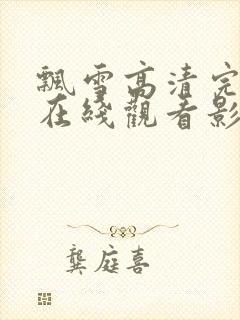 飄雪高清完
在綫觀看影
龔庭喜